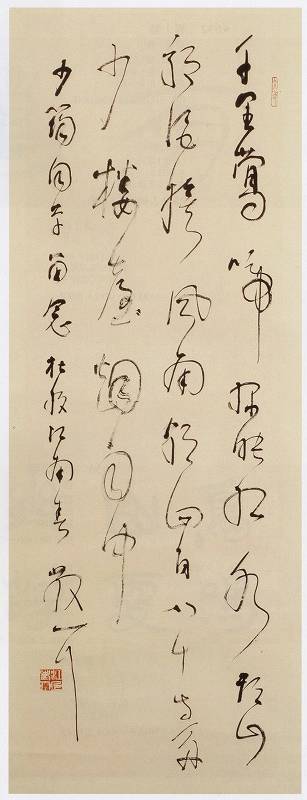 千里鶯啼綠映紅水邨山
郭酒旗風南朝四百八十寺多
少樓臺煙雨中
少 同 留念 杜牧江南春 散耳